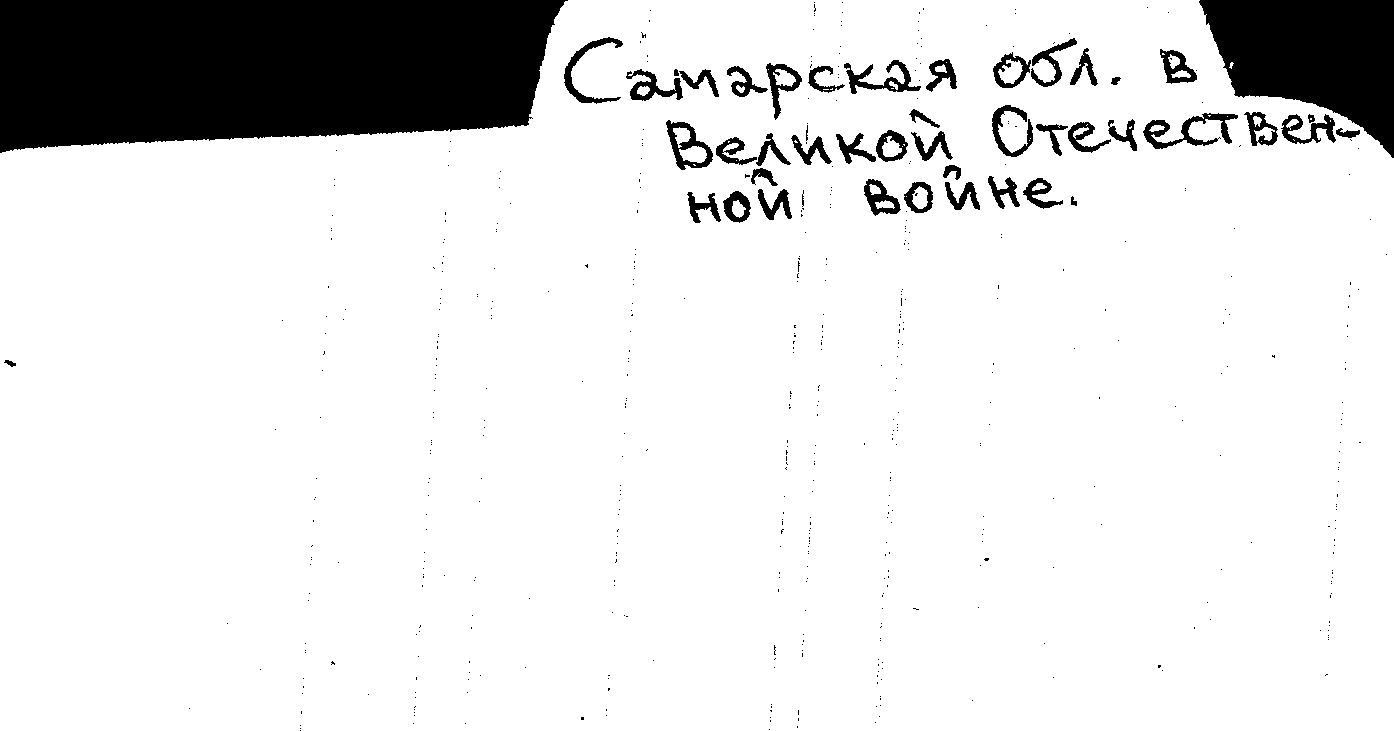 Самарская обл. в
Великой Отечествен-
ной войне.